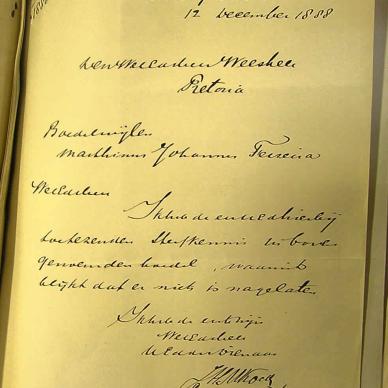 12 December 1888
Den WelEdelen Weesheer
Pretoria
Boedelwijlen
Marthinus Johannes Teixeira
WelEdelen
Ik heb de eer UEd hierbij
toetezenden Sterfkennis in boven
genoemden boedel, waaruit
blijkt dat er niets is nagelaten
Ik heb de eer te zijn
WelEdelheer
UEd dw Dienaar